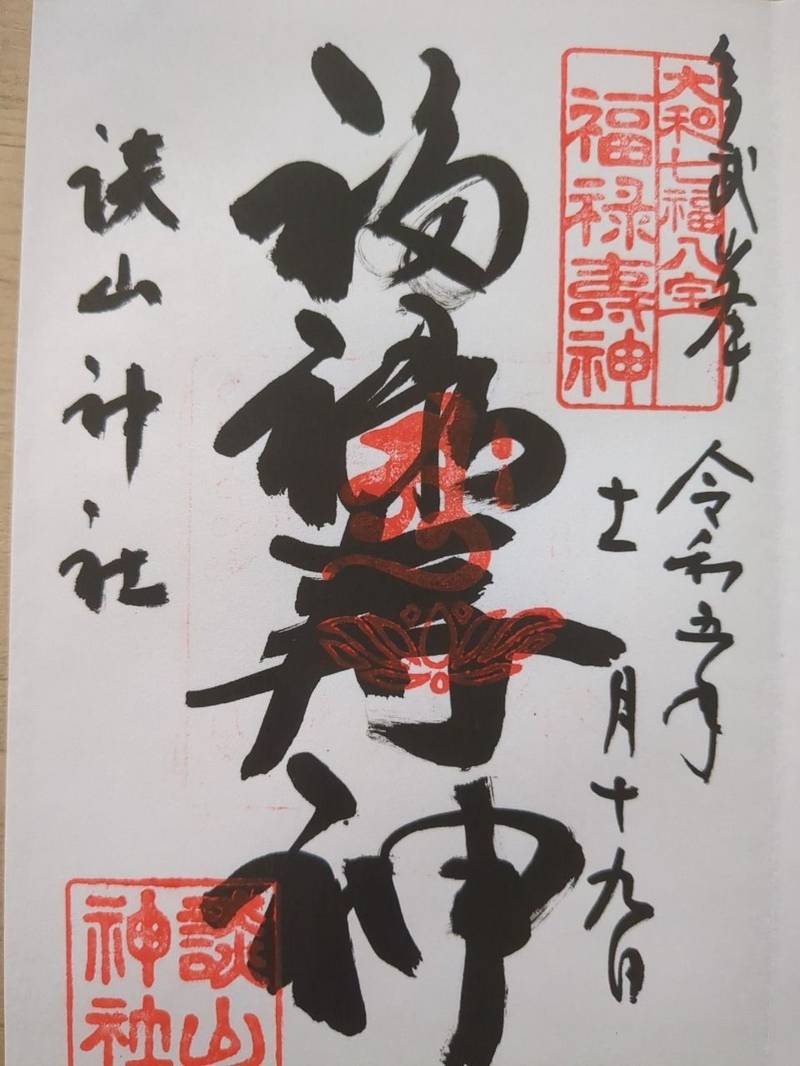 多武峯
大和七福八宝
福禄壽神
令和五年
十一月十九日
福禄寿神
談山神社
談山
神社